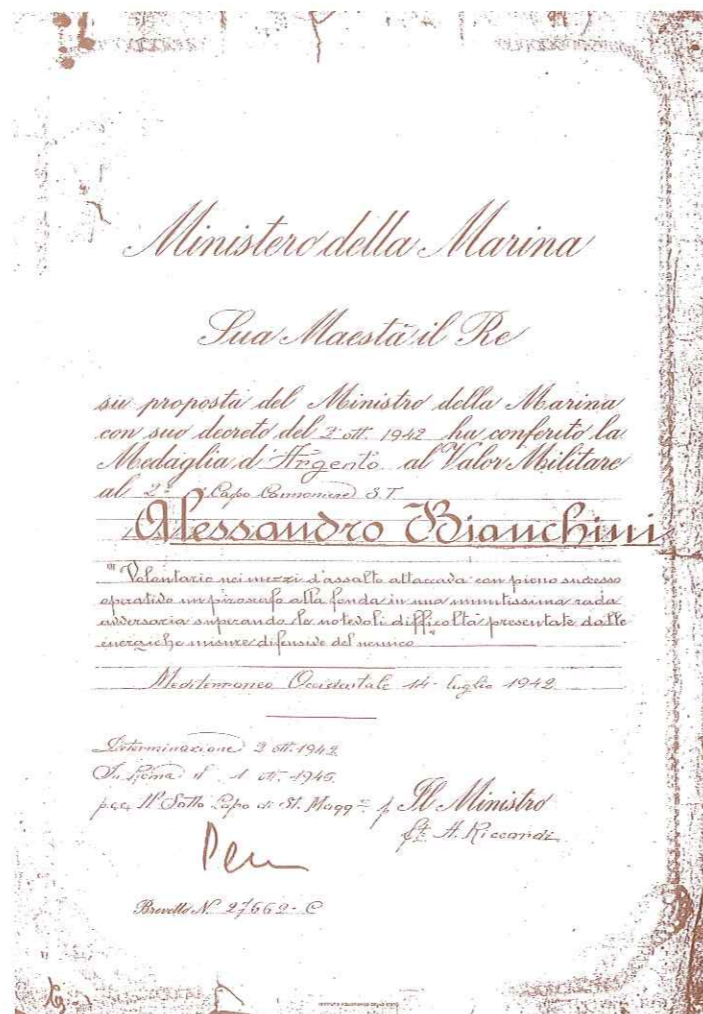 Ministero della Marina
Sua Maestà il Re
su proposta del Ministro della Marina
con suo decreto del 2 ott. 1942 ha conferito la
Medaglia d'Argento al Valor Militare
al 2° Capo Cannoniere S.T.
Alessandro Bianchini
"Volontario nei mezzi d'assalto attaccava con pieno successo
operativo un piroscafo alla fonda in una munitissima rada
avversaria superando le notevoli difficoltà presentate dalle
energiche misure difensive del nemico"
Mediterraneo Occidentale 14 luglio 1942
Determinazione 2 ott. 1942
Roma 1 ott. 1946.
p.c.c. Il Sotto Capo di St. Magg. p. Il Ministro
A. Riccardi
Brevetto N. 27662-C